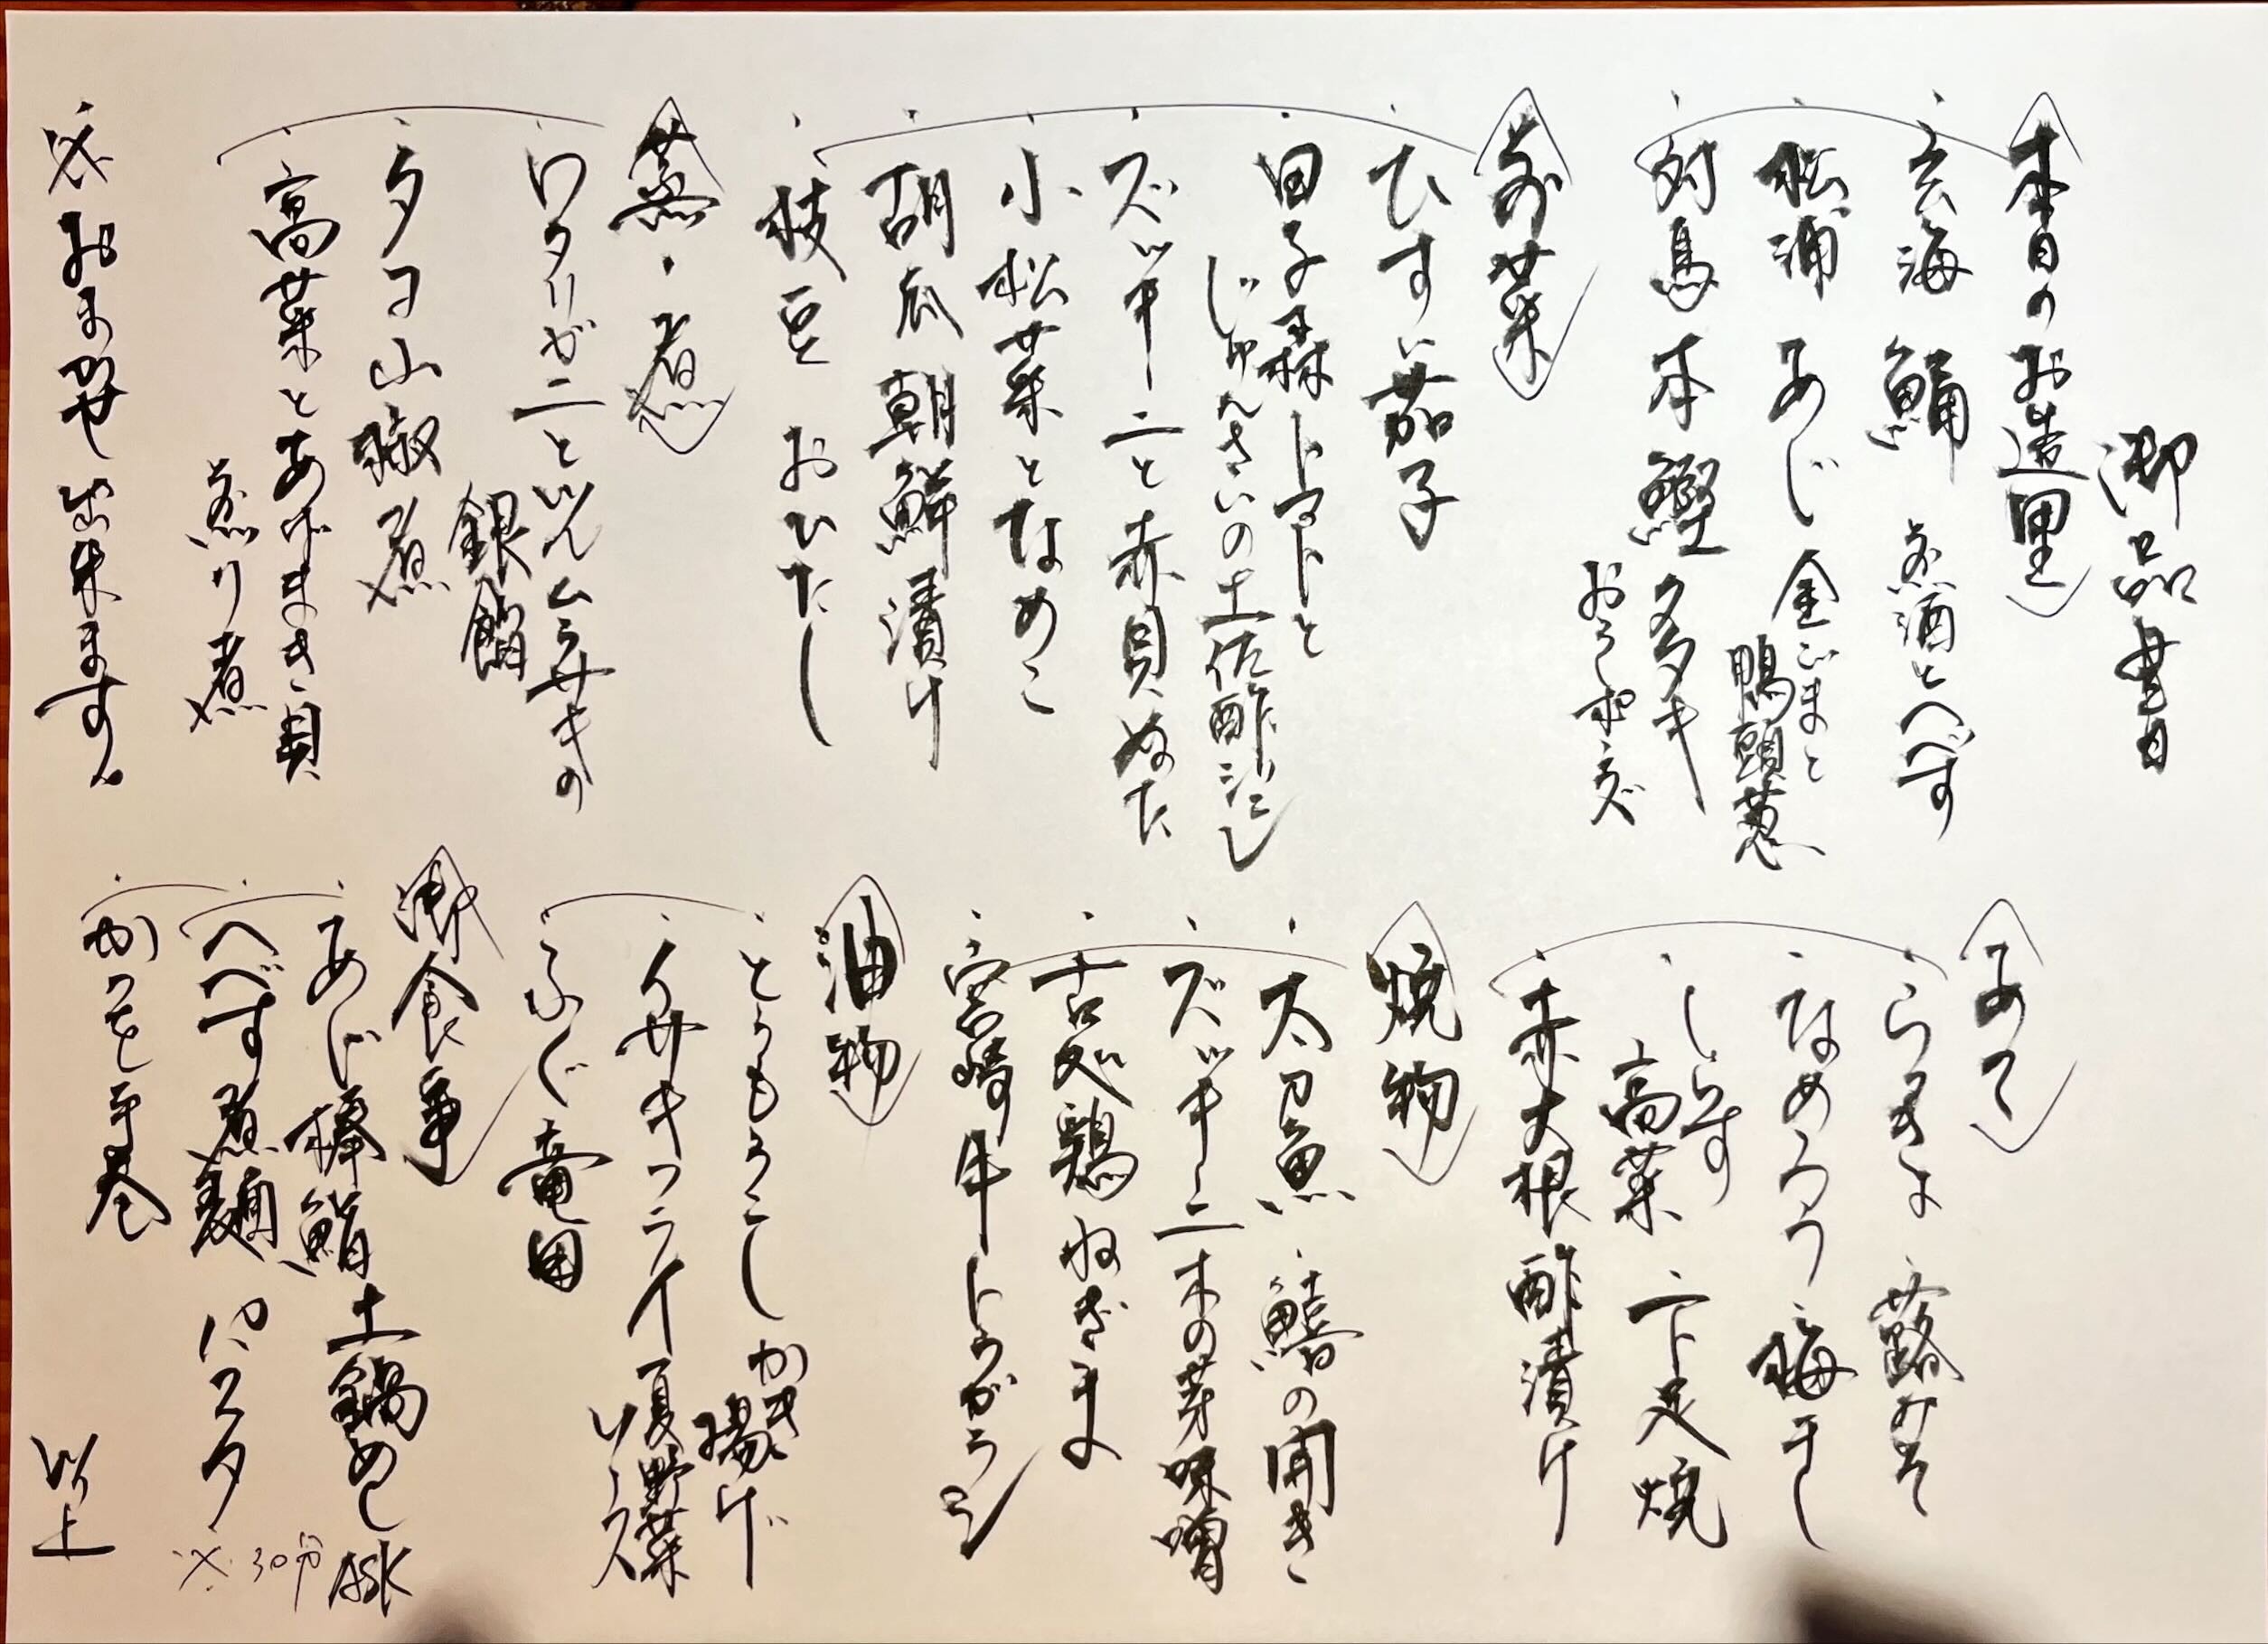 御品書
本日のお造里
玄海 鯒 煎酒とへべす
松浦 あじ 金ごまと
鴨頭葱
対馬 本鰹 タタキ
おろしポンズ
前菜
ひすい茄子
田子森トマトと
じゅんさいの土佐酢ジュレ
ズッキーニと赤貝ぬた
小松菜となめこ
胡瓜 朝鮮漬け
枝豆 おひたし
蒸・煮
ワタリガニと ムラサキの
銀餡
タコ山椒煮
高菜とあげまき貝
煎り煮
※おまかせ出来ます。
あて
らっきょ 蕗みそ
なめろう 梅干し
しらす
高菜 下足焼
赤大根酢漬け
焼物
太刀魚 鰭の開き
ズッキーニ木の芽味噌
古処鶏ねぎま
宮崎牛トウガラシ
油物
とうもろこし かき
揚げ
イサキフライ 夏野菜
ソース
ふぐ竜田
御食事
あじ棒鮨 土鍋めし ASK
※30分
へべす煮麺 パスタ
かつを手巻
以上